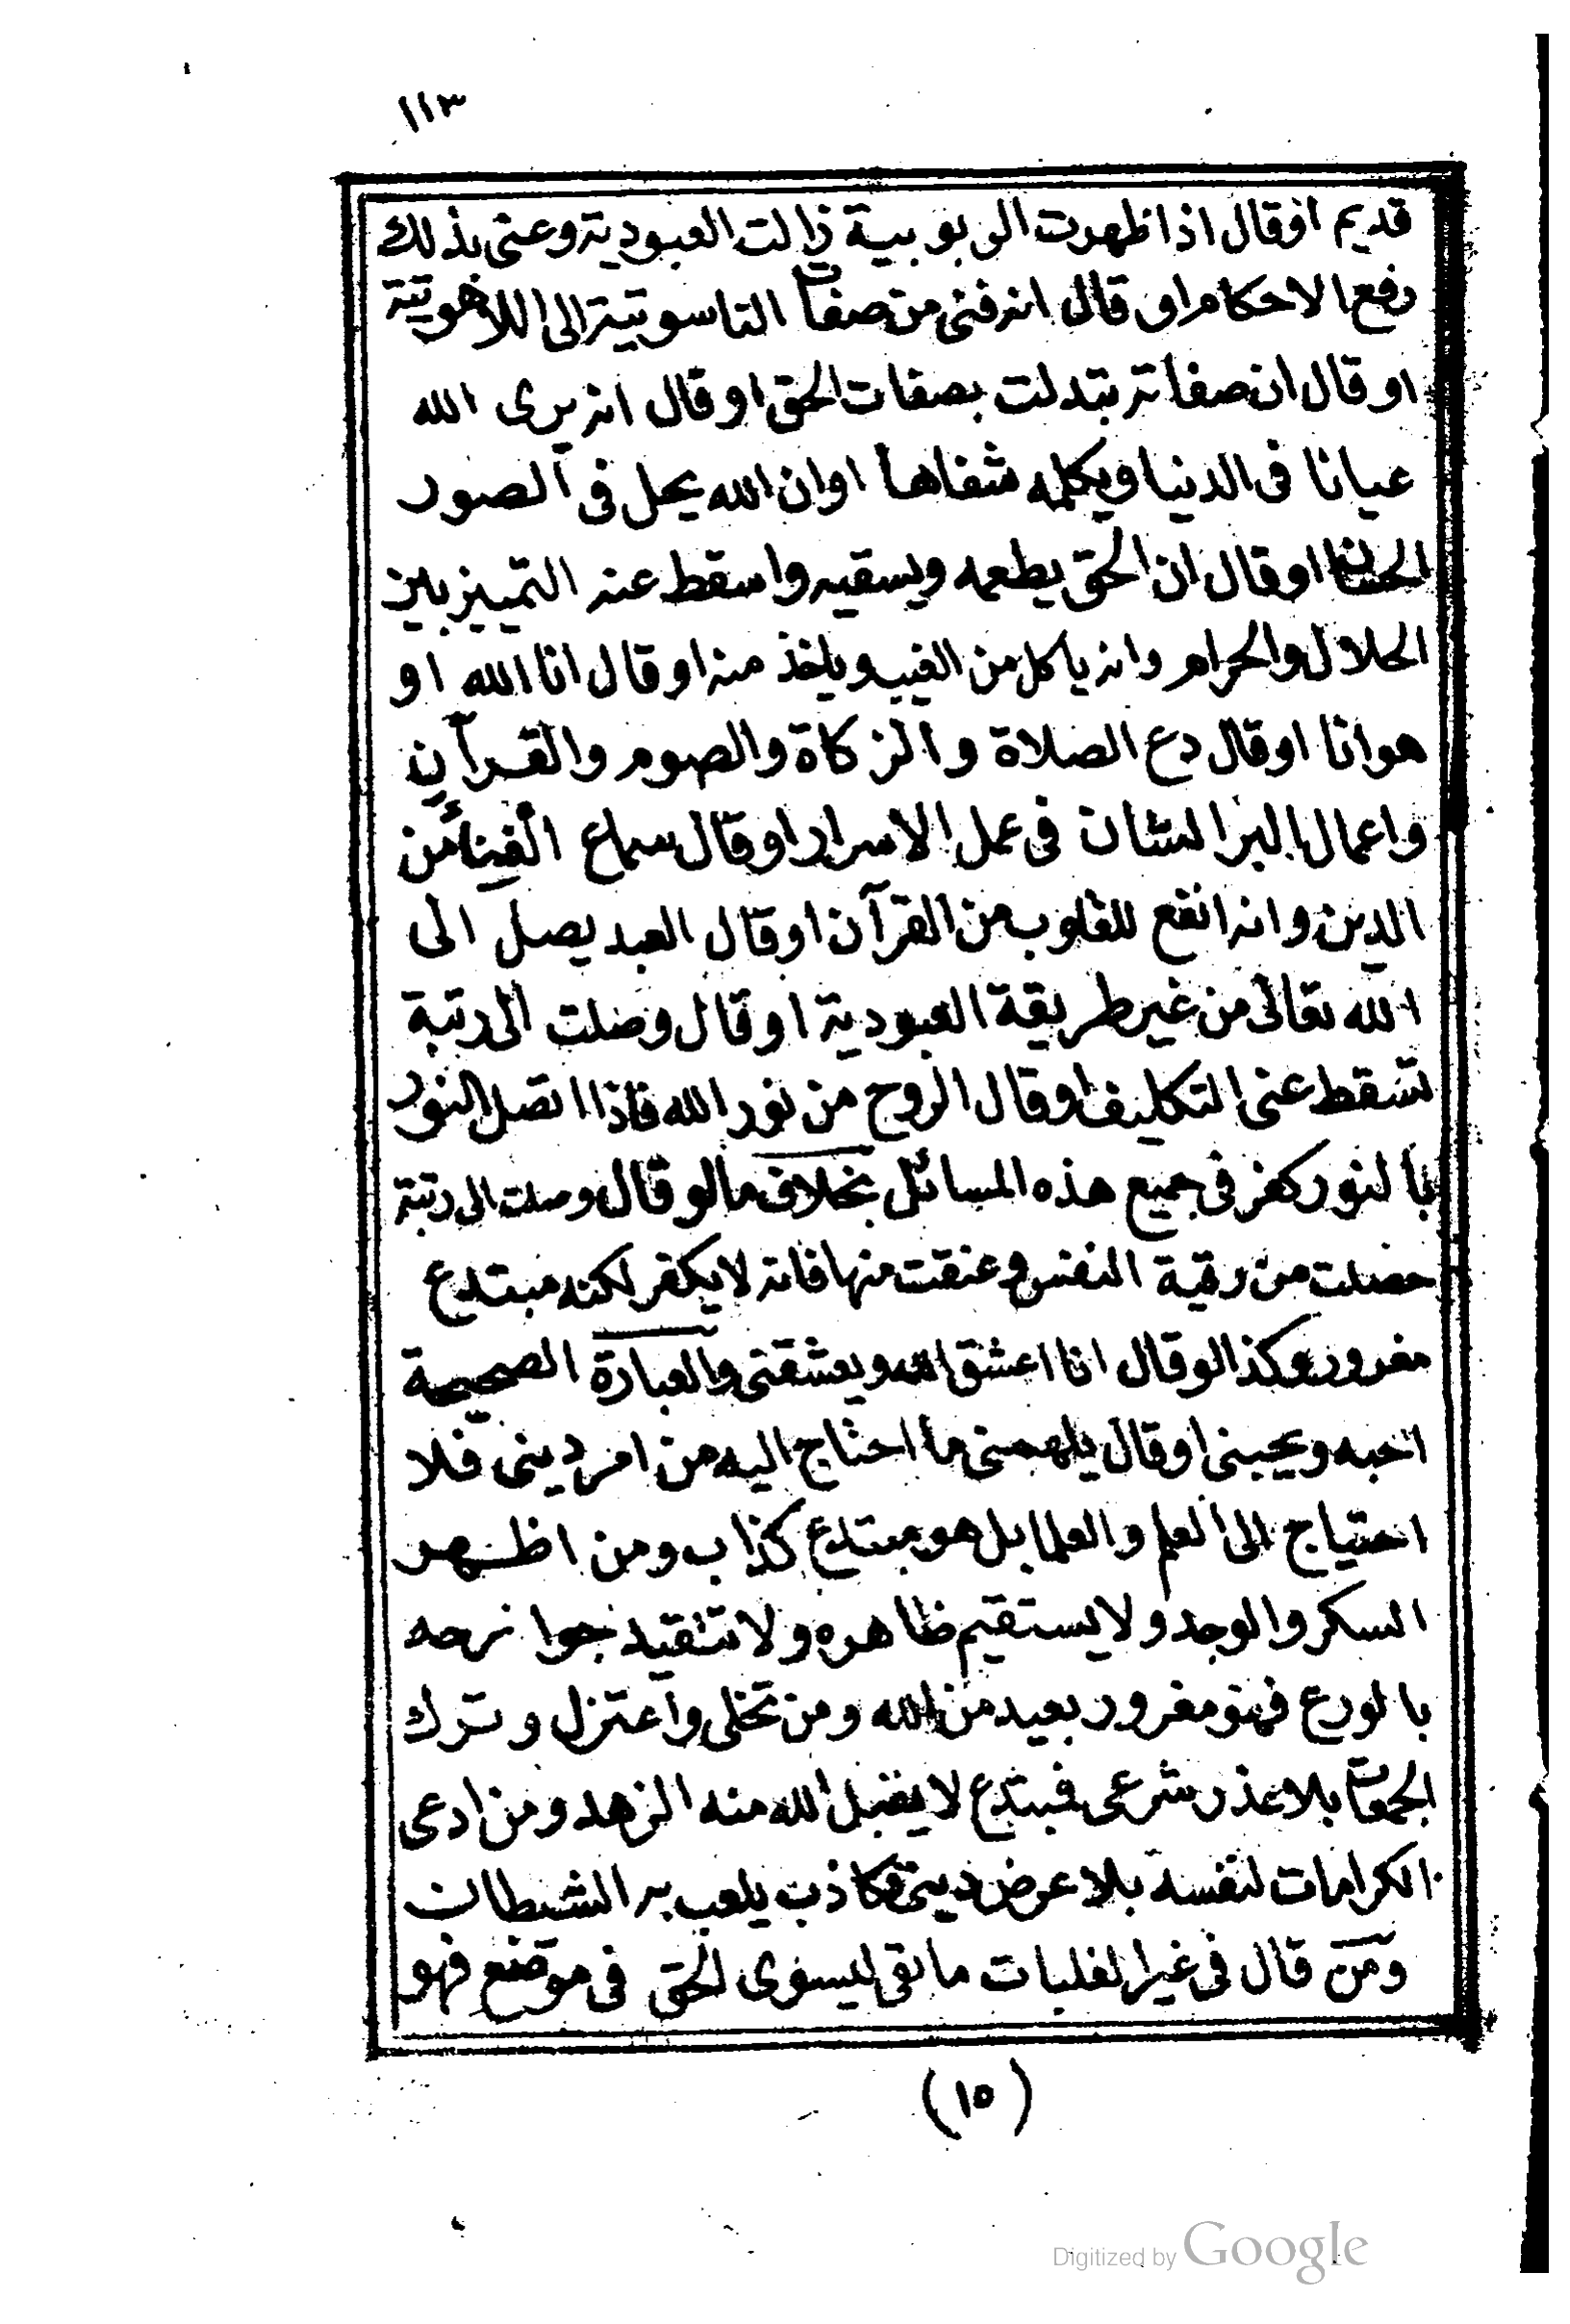 ١١٣
قديم او قال اذا ظهرت الربوبية زالت العبودية وعنى بذلك
رفع الاحكام او قال انه فنى من صفات الناسوتية الى اللاهوتية
او قال ان صفاته تبدلت بصفات الحق او قال انه يرى الله
عيانا فى الدنيا ويكلمه شفاها او ان الله يحل فى الصور
الحسان او قال ان الحق يطعمه ويسقيه واسقط عنه التمييز بين
الحلال والحرام وانه ياكل من الغيب وياخذ منه او قال انا الله او
هو انا او قال دع الصلاة والزكاة والصوم والقرآن
واعمال البر الشان فى عمل الاسرار او قال سماع الغناء من
الدين وانه انفع للقلوب من القرآن او قال العبد يصل الى
الله تعالى من غير طريقة العبودية او قال وصلت الى رتبة
تسقط عنى التكليف او قال الروح من نور الله فاذا اتصل النور
بالنور كفر فى جميع هذه المسائل بخلاف ما لو قال وصلت الى رتبة
خصلت من رقية النفس وعتقت منها فانه لا يكفر لكنه مبتدع
مغرور وكذا لو قال انا اعشق الله ويعشقنى والعبارة الصحيحة
احبه ويحبنى او قال يلهمنى ما احتاج اليه من امر دينى فلا
احتياج الى العلم والعلما بل هو مبتدع كذاب ومن اظهر
السكر والوجد ولا يستقيم ظاهره ولا تتقيد جوارحه
بالورع فهو مغرور بعيد من الله ومن تخلى واعتزل وترك
الجمعات بلا عذر شرعى فمبتدع لا يقبل الله منه الزهد ومن ادعى
الكرامات لنفسه بلا عرض دينى فكاذب يلعب به الشيطان
ومن قال فى غير الغلبات ما بقى ليسوى الحق فى موضع فهو
(١٥)
Digitized by Google